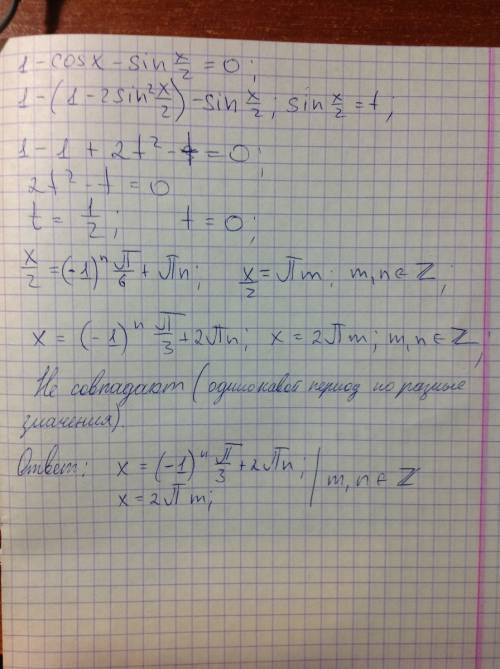 1 - cosx - sin x/2 = 0;
1 - (1 - 2sin² x/2) - sin x/2; sin x/2 = t;
1 - 1 + 2t² - t = 0;
2t² - t = 0
t = 1/2; t = 0;
x/2 = (-1)ⁿ П/6 + Пn; x/2 = Пm; m,n ∈ Z;
x = (-1)ⁿ П/3 + 2Пn; x = 2Пm; m,n ∈ Z;
Не совпадают (одинокавой период но разные
значения).
Ответ: x = (-1)ⁿ П/3 + 2Пn; | m,n ∈ Z
x = 2Пm;